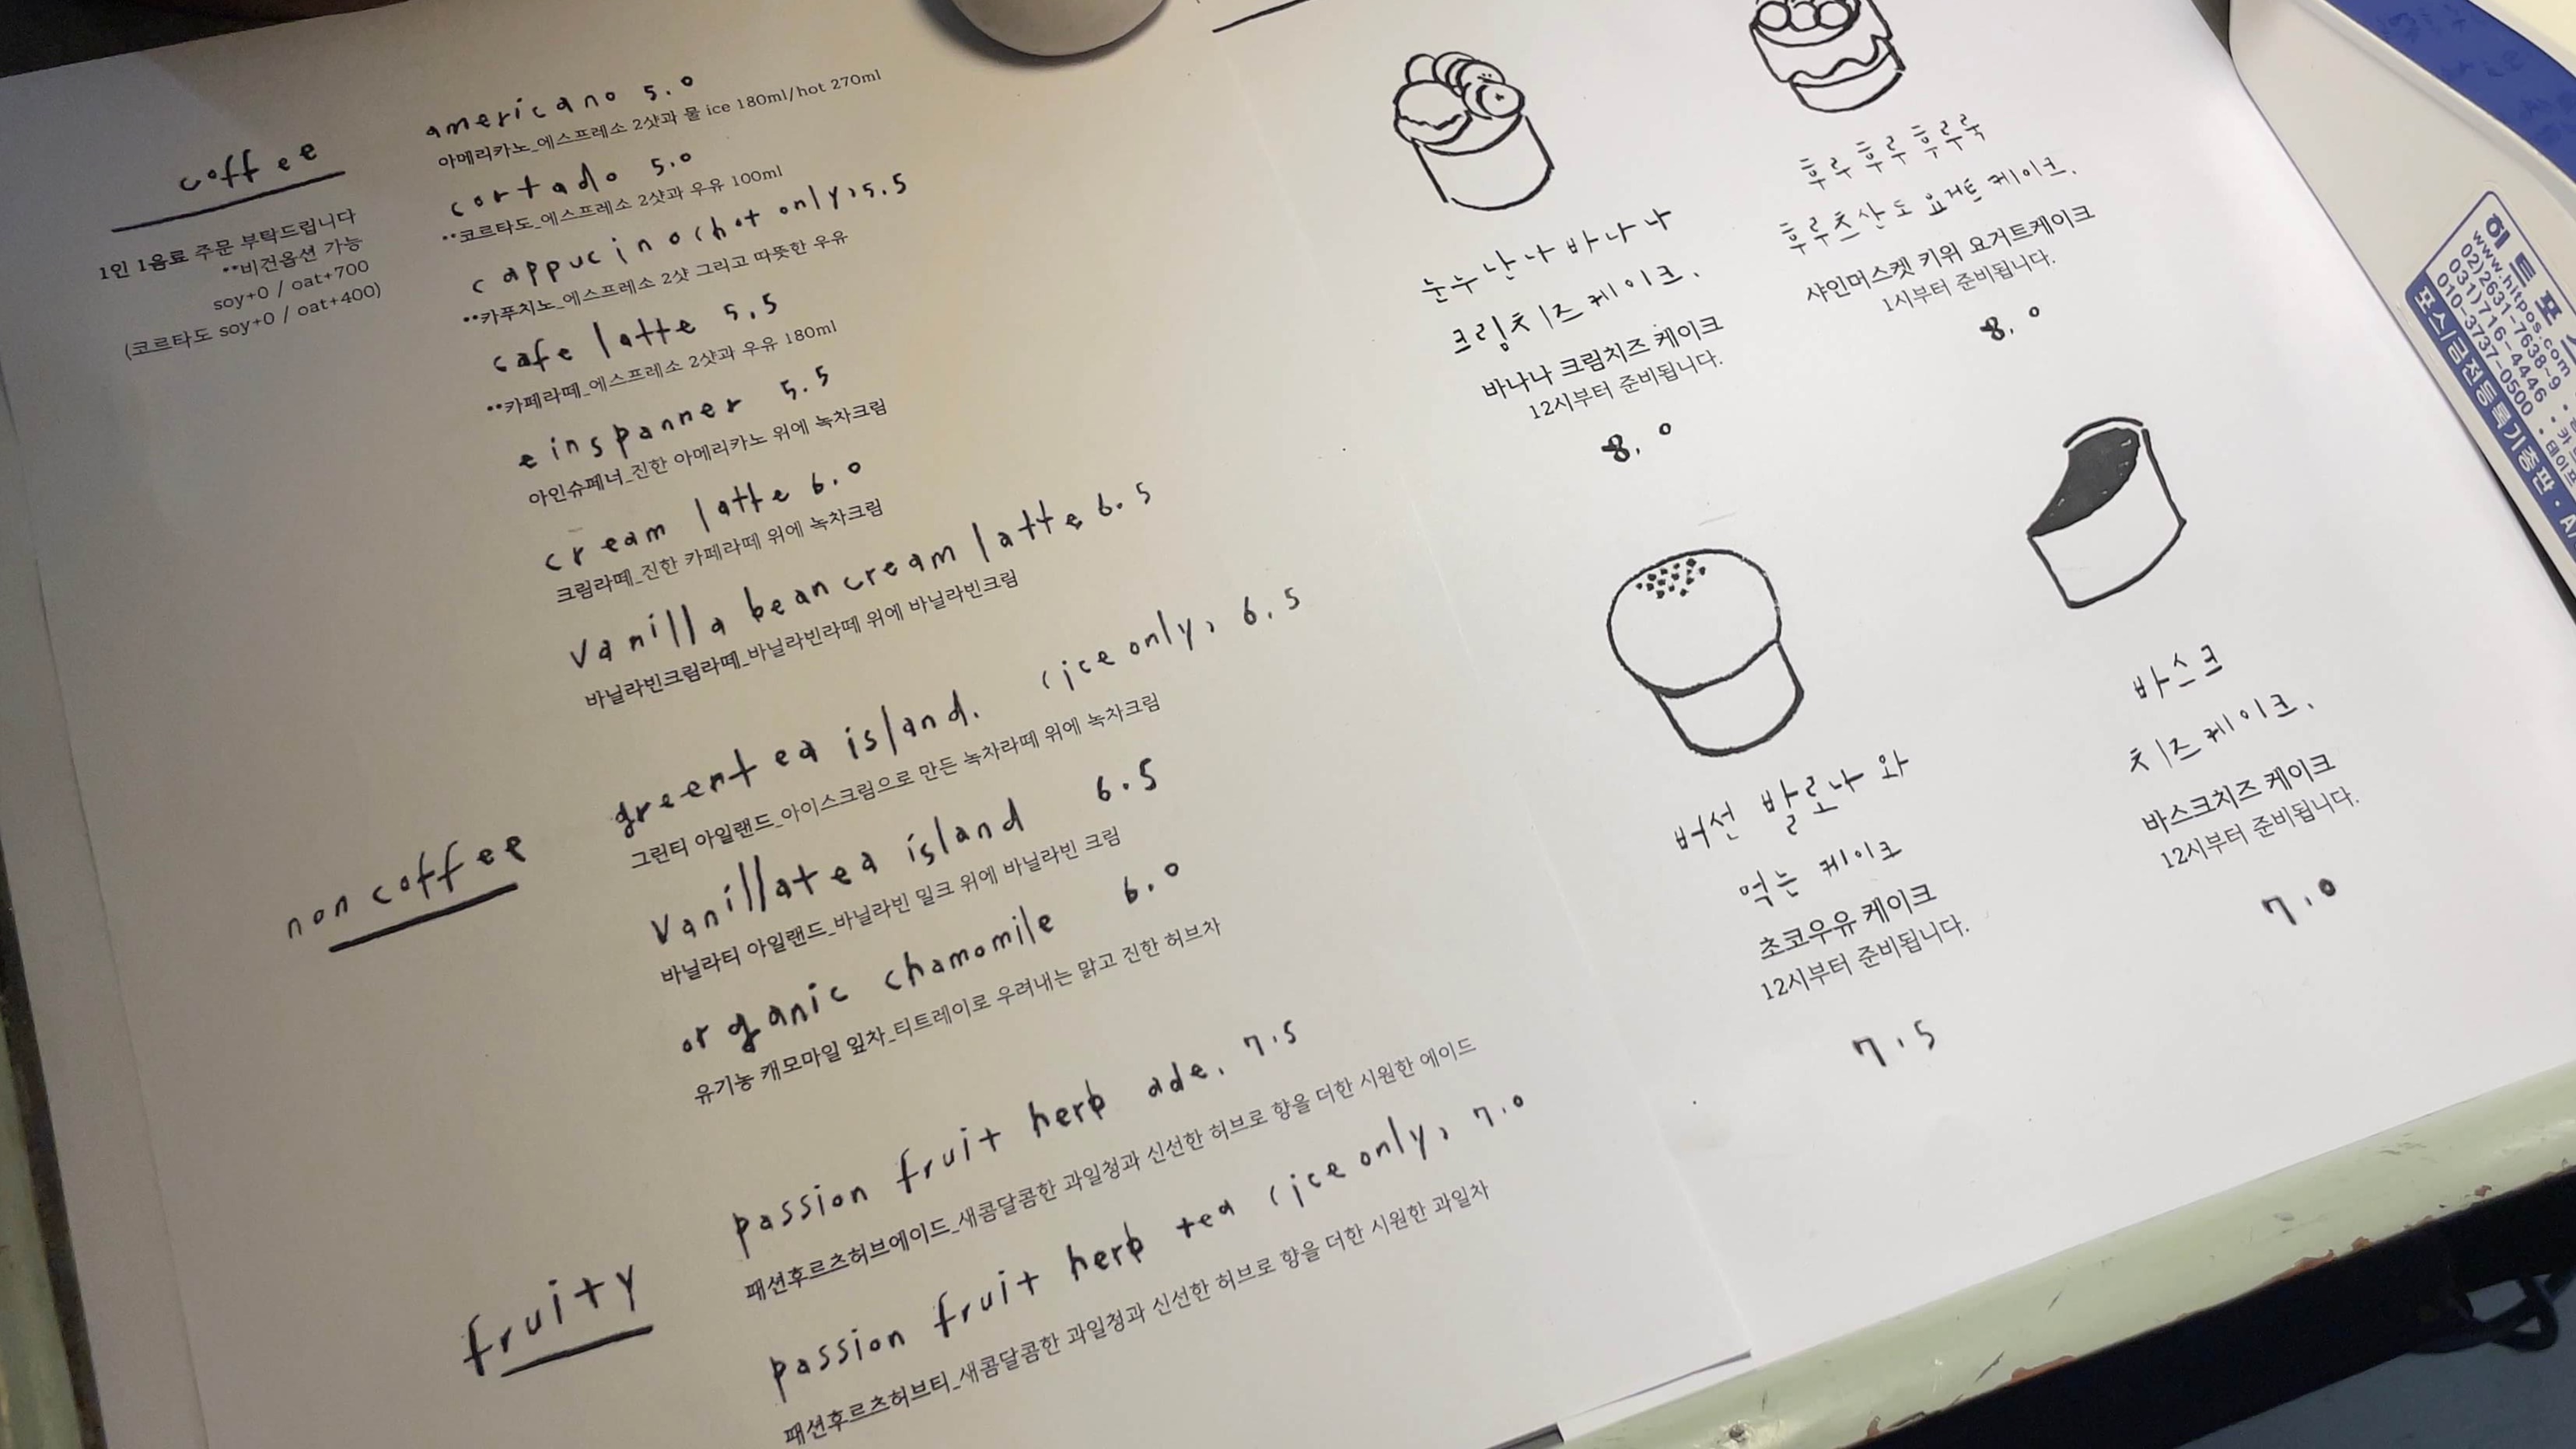 coffee
1인 1음료 주문 부탁드립니다
**비건옵션 가능
soy+0 / oat+700
(코르타도 soy+0 / oat+400)
americano 5.0
아메리카노_에스프레소 2샷과 물 ice 180ml/hot 270ml
cortado 5.0
**코르타도_에스프레소 2샷과 우유 100ml
cappucino(hot only) 5.5
**카푸치노_에스프레소 2샷 그리고 따뜻한 우유
cafe latte 5.5
**카페라떼_에스프레소 2샷과 우유 180ml
einspanner 5.5
아인슈페너_진한 아메리카노 위에 녹차크림
cream latte 6.0
크림라떼_진한 카페라떼 위에 녹차크림
vanilla bean cream latte 6.5
바닐라빈크림라떼_바닐라빈라떼 위에 바닐라빈크림
non coffee
greentea island. (ice only) 6.5
그린티 아일랜드_아이스크림으로 만든 녹차라떼 위에 녹차크림
vanillatea island 6.5
바닐라티 아일랜드_바닐라빈 밀크 위에 바닐라빈 크림
organic chamomile 6.0
유기농 캐모마일 잎차_티트레이로 우려내는 맑고 진한 허브차
fruity
passion fruit herb ade. 7.5
패션후르츠허브에이드_새콤달콤한 과일청과 신선한 허브로 향을 더한 시원한 에이드
passion fruit herb tea (ice only) 7.0
패션후르츠허브티_새콤달콤한 과일청과 신선한 허브로 향을 더한 시원한 과일차
눈누난나 바나나
크림치즈케이크.
바나나 크림치즈 케이크
12시부터 준비됩니다.
8.0
후루후루후루룩
후루츠산도 요거트 케이크.
샤인머스켓 키위 요거트케이크
1시부터 준비됩니다.
8.0
버선 발로나와
먹는 케이크
초코우유 케이크
12시부터 준비됩니다.
7.5
바스크
치즈케이크.
바스크치즈 케이크
12시부터 준비됩니다.
7.0
히트포
www.hitpos.com
02)2631-7638~9
031)716-4446
010-3737-0500
포스/금전등록기총판